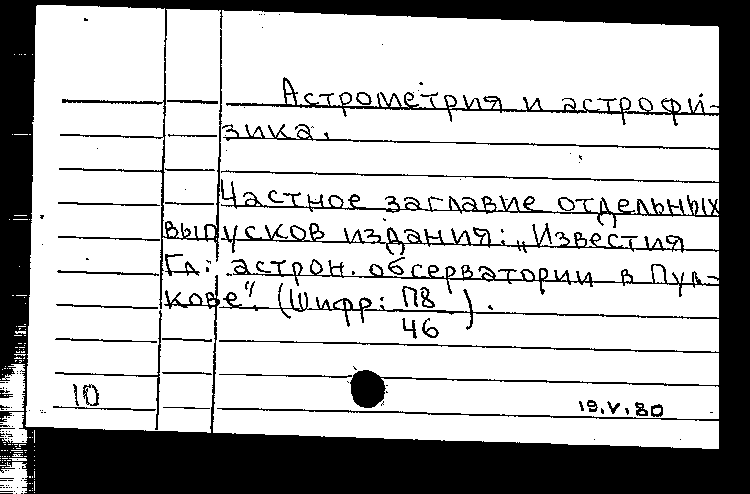 Астрометрия и астрофи-
зика.
Частное заглавие отдельных
выпусков издания: „Известия
Гл. астрон. обсерватории в Пул-
кове". (Шифр: П8/46).
10
19.V.80